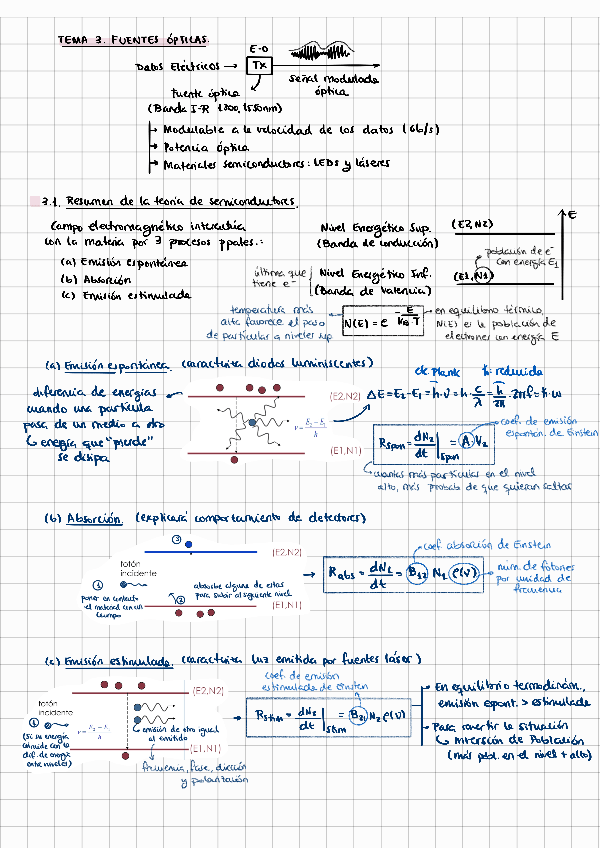 TEMA 3. FUENTES ÓPTICAS.
E-O
Datos Eléctricos → Tx
señal modulada
óptica
fuente óptica
(Banda I-R 1300, 1550nm)
→ Modulable a la velocidad de los datos (Gb/s)
→ Potencia óptica
→ Materiales semiconductores: LEDs y láseres
3.1. Resumen de la teoría de semiconductores.
Campo electromagnético interactúa
con la materia por 3 procesos ppales.:
(a) Emisión espontánea
(b) Absorción
(c) Emisión estimulada
Nivel Energético Sup. (E2,N2)
(Banda de conducción)
E
población de e-
con energía E1
última que
tiene e-
Nivel Energético Inf. (E1,N1)
(Banda de Valencia)
temperatura más
alta favorece el paso
de particular a niveles sup
N(E) = e^(-E/(KB·T))
en equilibrio térmico,
N(E) es la población de
electrones con energía E
(a) Emisión espontánea. (caracteriza diodos luminiscentes)
diferencia de energías
cuando una partícula
pasa de un medio a otro
↳ energía que "pierde"
se disipa
(E2,N2)
ν = (E2 - E1)/h
(E1,N1)
cte. Plank
ħ: reducida
ΔE = E2 - E1 = h·ν = h·c/λ = h/2π · 2πf = ħ·ω
Rspon = dN2/dt |spon = A N2
coef. de emisión
espontan. de Einstein
cuantas más partículas en el nivel
alto, más probab de que quieran saltar
(b) Absorción. (explicará comportamiento de detectores)
3
(E2,N2)
fotón
incidente
1
poner en contacto
el material con un
2
absorbe alguno de estos
para subir al siguiente nivel
(E1,N1)
coef absorción de Einstein
Rabs = dN1/dt = B12 N1 ρ(ν)
núm. de fotones
por unidad de
frecuencia
(c) Emisión estimulada. (caracteriza luz emitida por fuentes láser)
coef. de emisión
estimulada de Einstein
(E2,N2)
fotón
incidente
1
(si su energía
coincide con la
dif. de energ.
entre niveles)
ν = (E2 - E1)/h
emisión de otro igual
al emitido
(E1,N1)
frecuencia, fase, dirección
y polarización
Rstim = dN2/dt |stim = B21 N2 ρ(ν)
→ En equilibrio termodinám.,
emisión espont. > estimulada
→ Para revertir la situación
↳ Inversión de Población
(más pobl. en el nivel + alto)